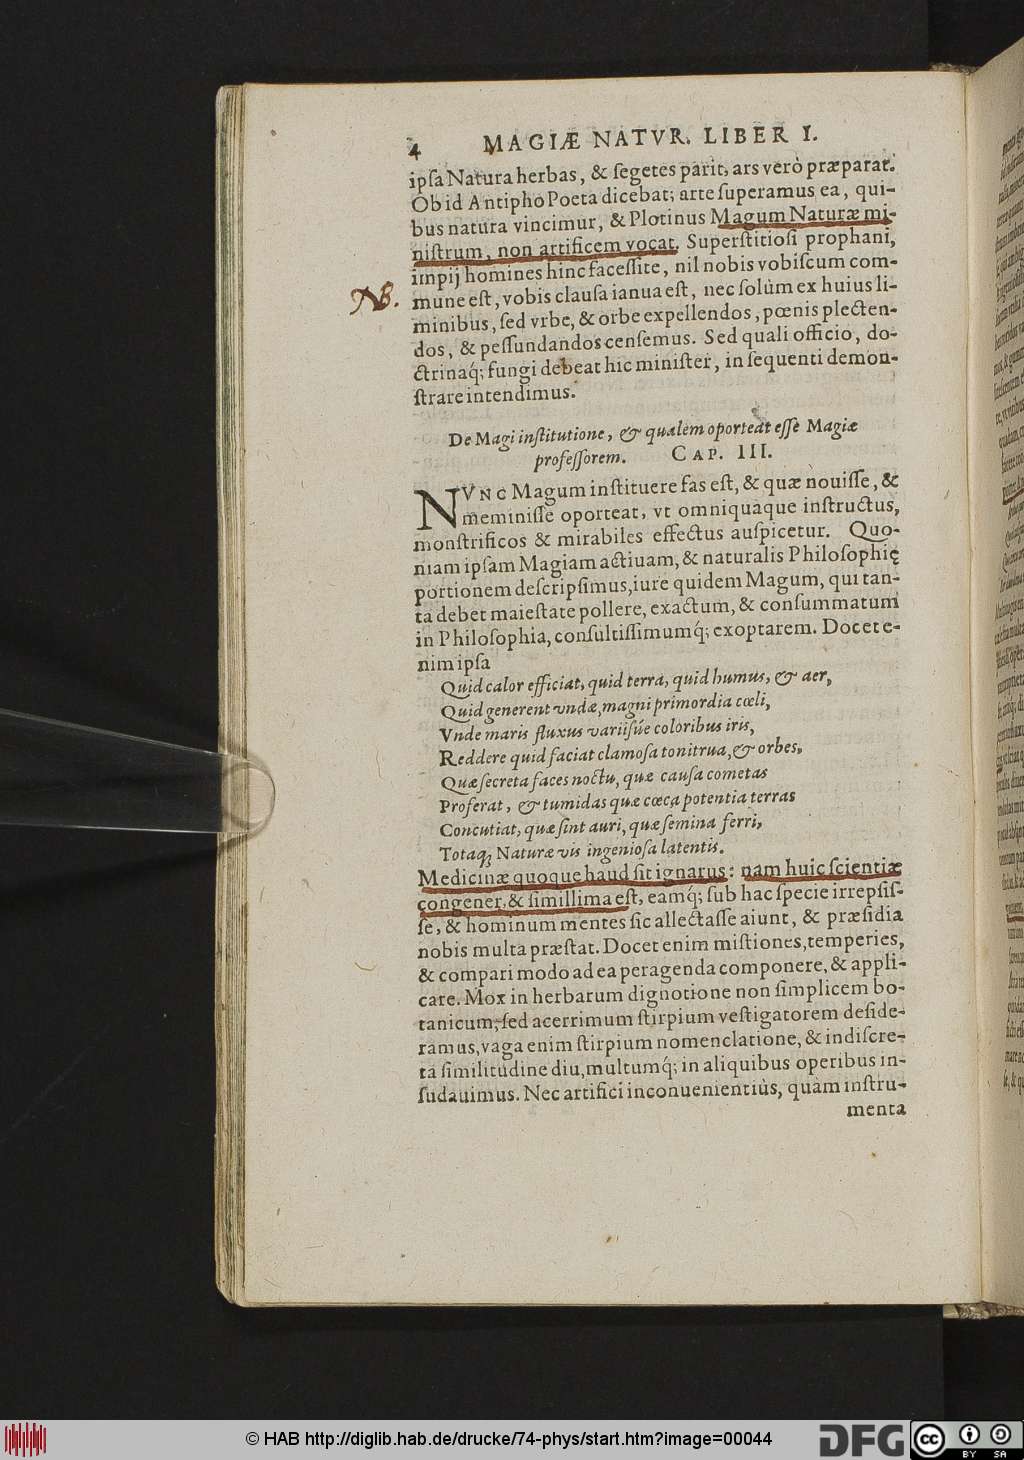 4 MAGIÆ NATVR. LIBER I.
ipſa Natura herbas, & ſegetes parit, ars verò præparat.
Ob id Antipho Poeta dicebat; arte ſuperamus ea, qui-
bus natura vincimur, & Plotinus Magum Naturæ mi-
niſtrum, non artificem vocat. Superſtitioſi prophani,
impij homines hinc faceſſite, nil nobis vobiſcum com-
NB. mune eſt, vobis clauſa ianua eſt, nec ſolùm ex huius li-
minibus, ſed vrbe, & orbe expellendos, pœnis plecten-
dos, & peſſundandos cenſemus. Sed quali officio, do-
ctrinaq́; fungi debeat hic miniſter, in ſequenti demon-
ſtrare intendimus.
De Magi inſtitutione, & qualem oporteat eſſe Magiæ
profeſſorem. CAP. III.
NVNC Magum inſtituere fas eſt, & quæ nouiſſe, &
meminiſſe oporteat, vt omniquaque inſtructus,
monſtrificos & mirabiles effectus auſpicetur. Quo-
niam ipſam Magiam actiuam, & naturalis Philoſophię
portionem deſcripſimus, iure quidem Magum, qui tan-
ta debet maieſtate pollere, exactum, & conſummatum
in Philoſophia, conſultiſſimumq́; exoptarem. Docet e-
nim ipſa
Quid calor efficiat, quid terra, quid humus, & aer,
Quid generent vndæ, magni primordia cœli,
Vnde maris fluxus variiſúe coloribus iris,
Reddere quid faciat clamoſa tonitrua, & orbes,
Quæ ſecreta faces noctu, quæ cauſa cometas
Proferat, & tumidas quæ cœca potentia terras
Concutiat, quæ ſint auri, quæ ſemina ferri,
Totaq; Naturæ vis ingenioſa latentis.
Medicinæ quoque haud ſit ignarus: nam huic ſcientiæ
congener, & ſimillima eſt, eamq́; ſub hac ſpecie irrepſiſ-
ſe, & hominum mentes ſic allectaſſe aiunt, & præſidia
nobis multa præſtat. Docet enim miſtiones, temperies,
& compari modo ad ea peragenda componere, & appli-
care. Mox in herbarum dignotione non ſimplicem bo-
tanicum, ſed acerrimum ſtirpium veſtigatorem deſide-
ramus, vaga enim ſtirpium nomenclatione, & indiſcre-
ta ſimilitudine diu, multumq́; in aliquibus operibus in-
ſudauimus. Nec artifici inconuenientiùs, quàm inſtru-
menta
© HAB http://diglib.hab.de/drucke/74-phys/start.htm?image=00044
DFG
cc BY SA